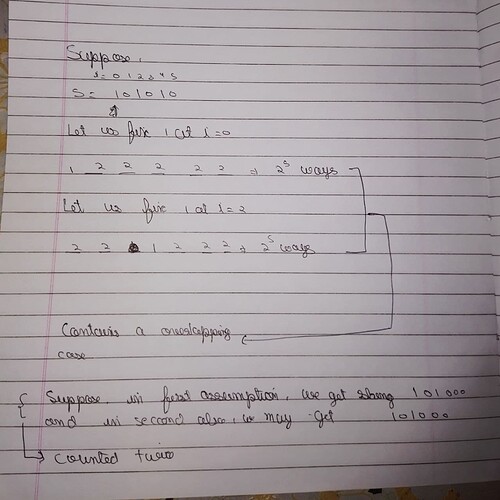 Suppose,
i= 0 1 2 3 4 5
S= 1 0 1 0 1 0
Let us fix 1 at i=0
1 2 2 2 2 2 → 2^5 ways
Let us fix 1 at i=2
2 2 1 2 2 2 → 2^5 ways
Contains a overlapping
case
Suppose in first assumption, we get string 101000
and in second also, we may get 101000
→ counted twice